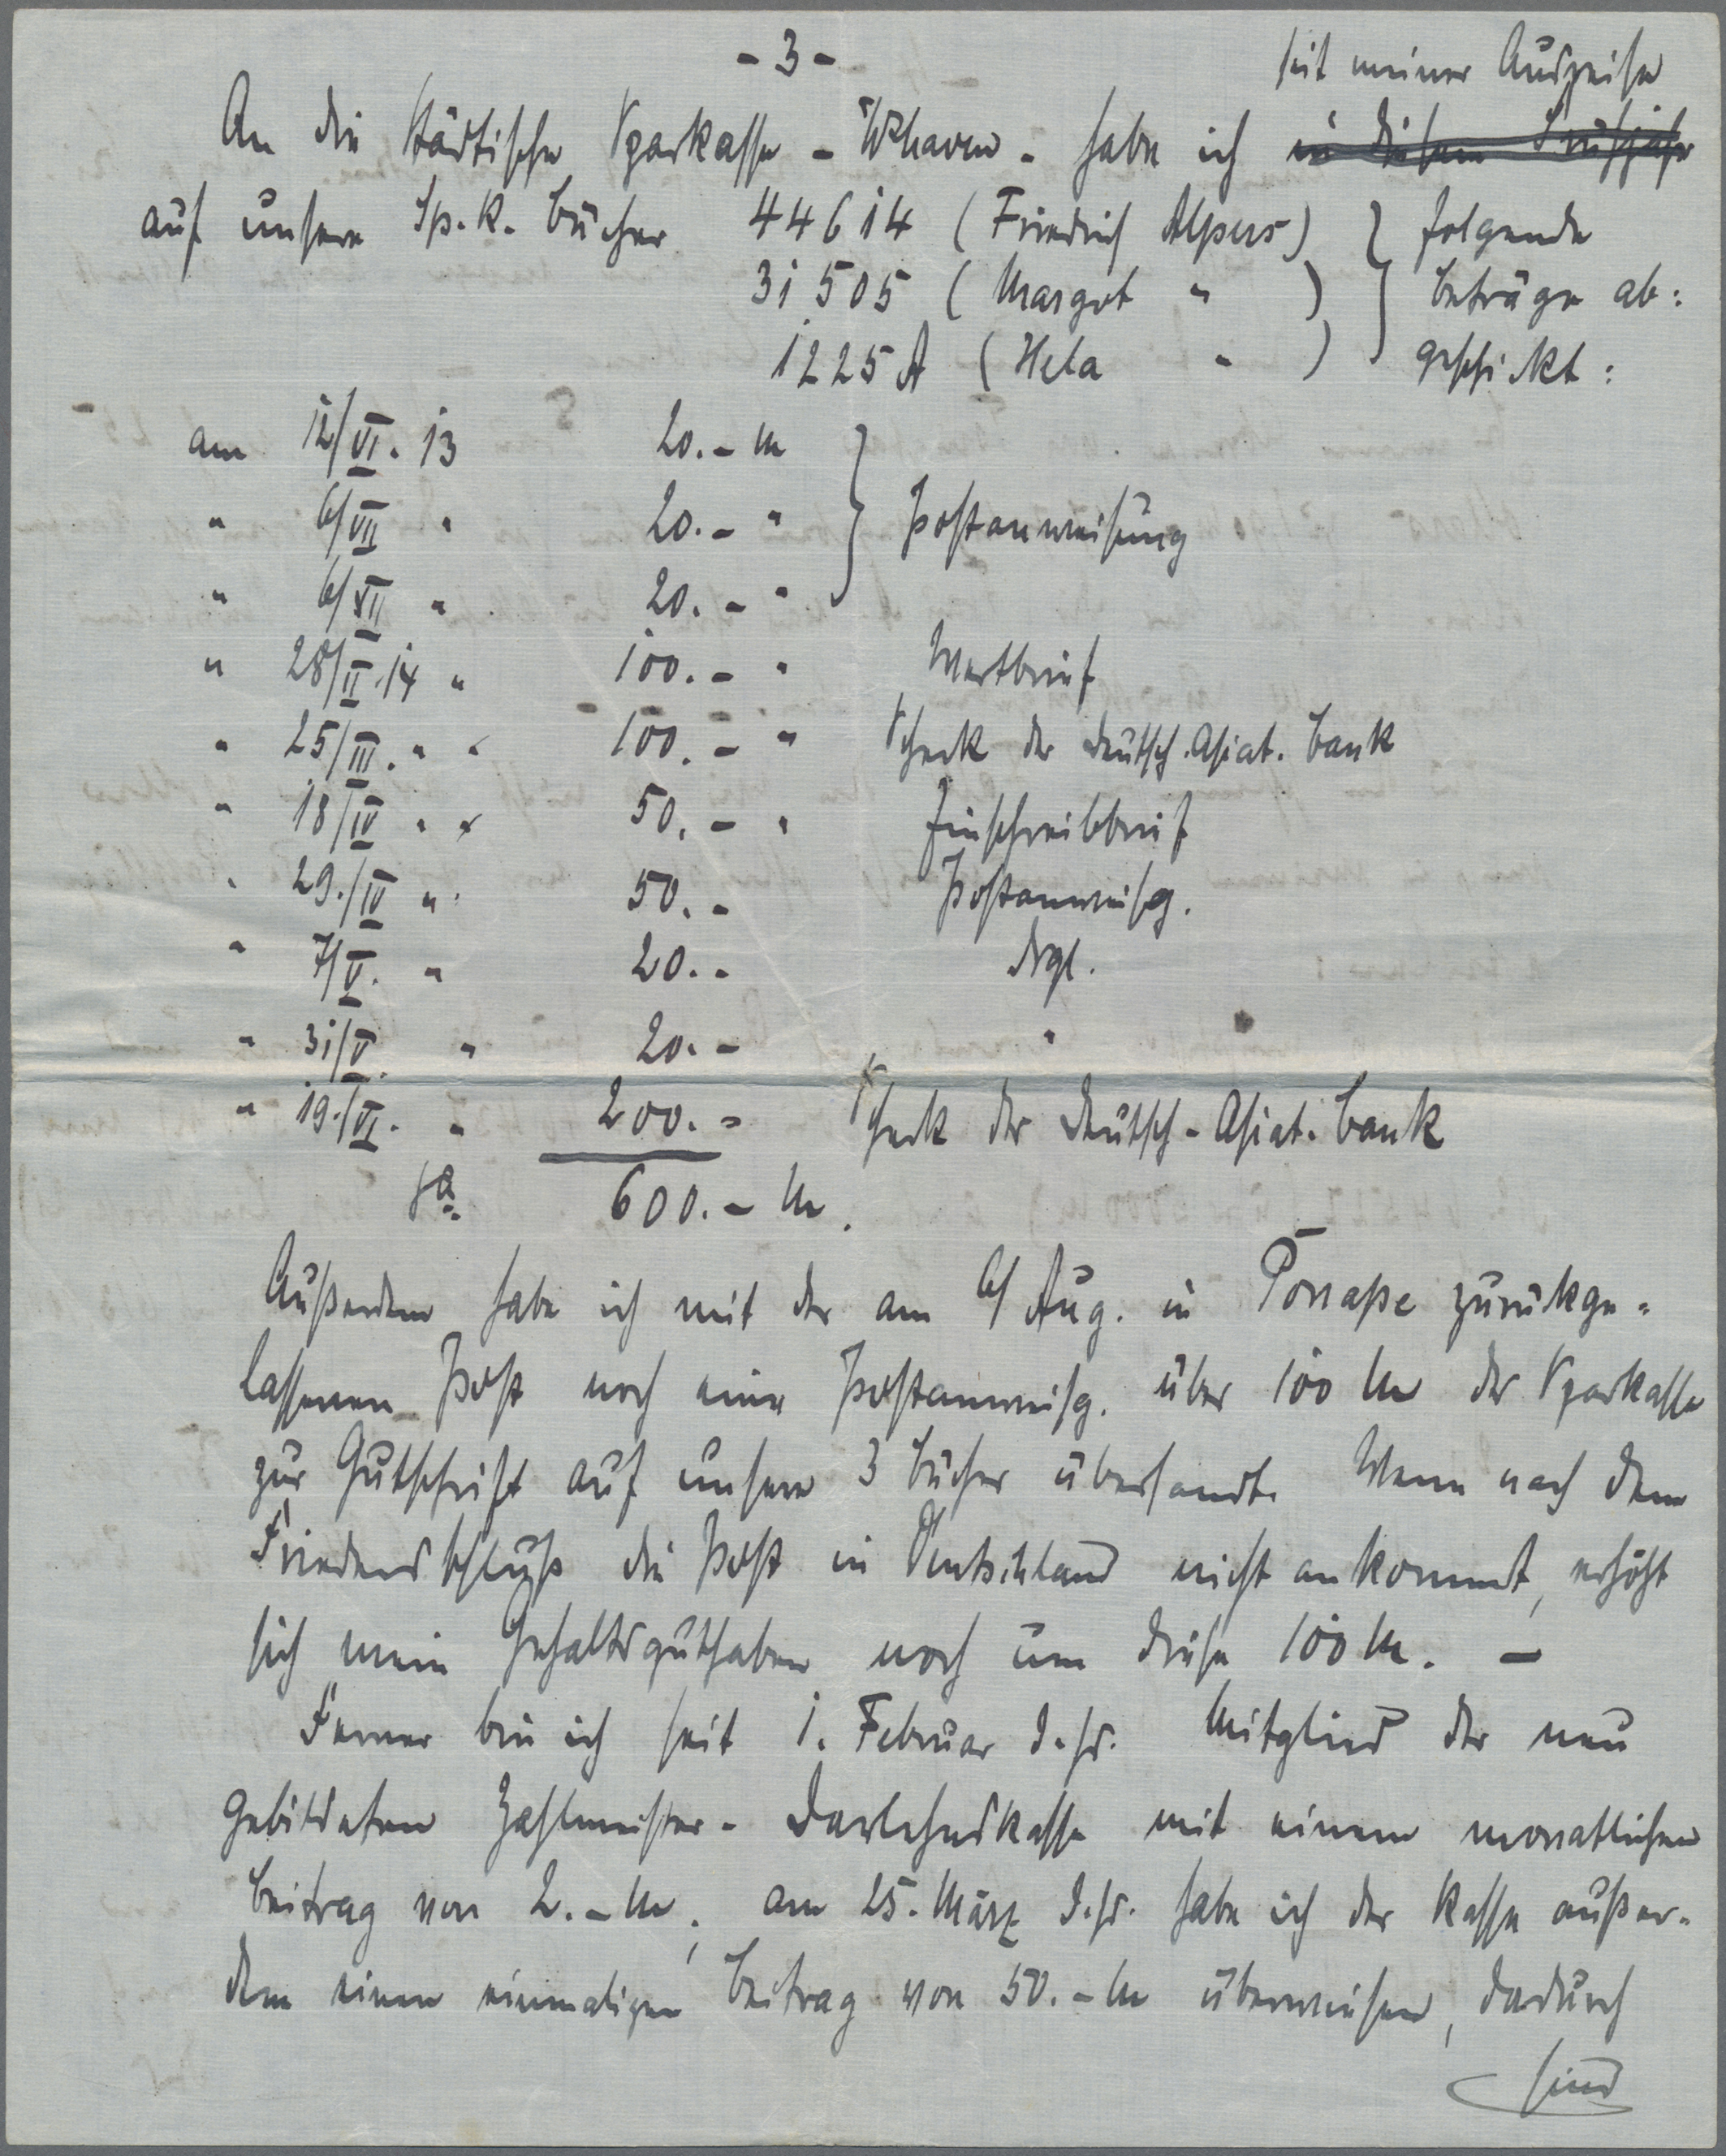 - 3 -
seit meiner Ausreise
An die Städtische Sparkasse - W'haven - habe ich in diesem Frühjahr
auf unsere Sp.K. Bücher 44614 (Friedrich Alpers) } folgende
31505 (Margot " ) } Beträge ab=
1225 A (Hela " ) } geschickt:
am 12/VI. 13 20.- M
" 6/VII " 20.- " } Postanweisung
" 6/XII " 20.- "
" 28/II. 14 " 100.- " Wertbrief
" 25/III. " " 100.- " Scheck der Deutsch.Asiat. Bank
" 18/IV " " 50.- " Einschreibbrief
" 29./IV " 50.- Postanweisg.
" 7/V. " 20.- drgl.
" 31/V. " 20.- "
" 19./VI. " 200.- Scheck der Deutsch-Asiat. Bank
Sa. 600.- M.
Außerdem habe ich mit der am 6/ Aug. in Ponape zurückge=
lassenen Post noch eine Postanweisg. über 100 M der Sparkasse
zur Gutschrift auf unsere 3 Bücher übersandt. Wenn nach dem
Friedensschluß die Post in Deutschland nicht ankommt, erhöht
sich mein Gehaltsguthaben noch um diese 100 M. -
Ferner bin ich seit 1. Februar d.Js. Mitglied der neu
gebildeten Zahlmeister-Darlehnskasse mit einem monatlichen
Beitrag von 2.- M, am 25. März d.Js. habe ich der Kasse außer-
dem einen einmaligen Beitrag von 50.- M überwiesen, dadurch
sind